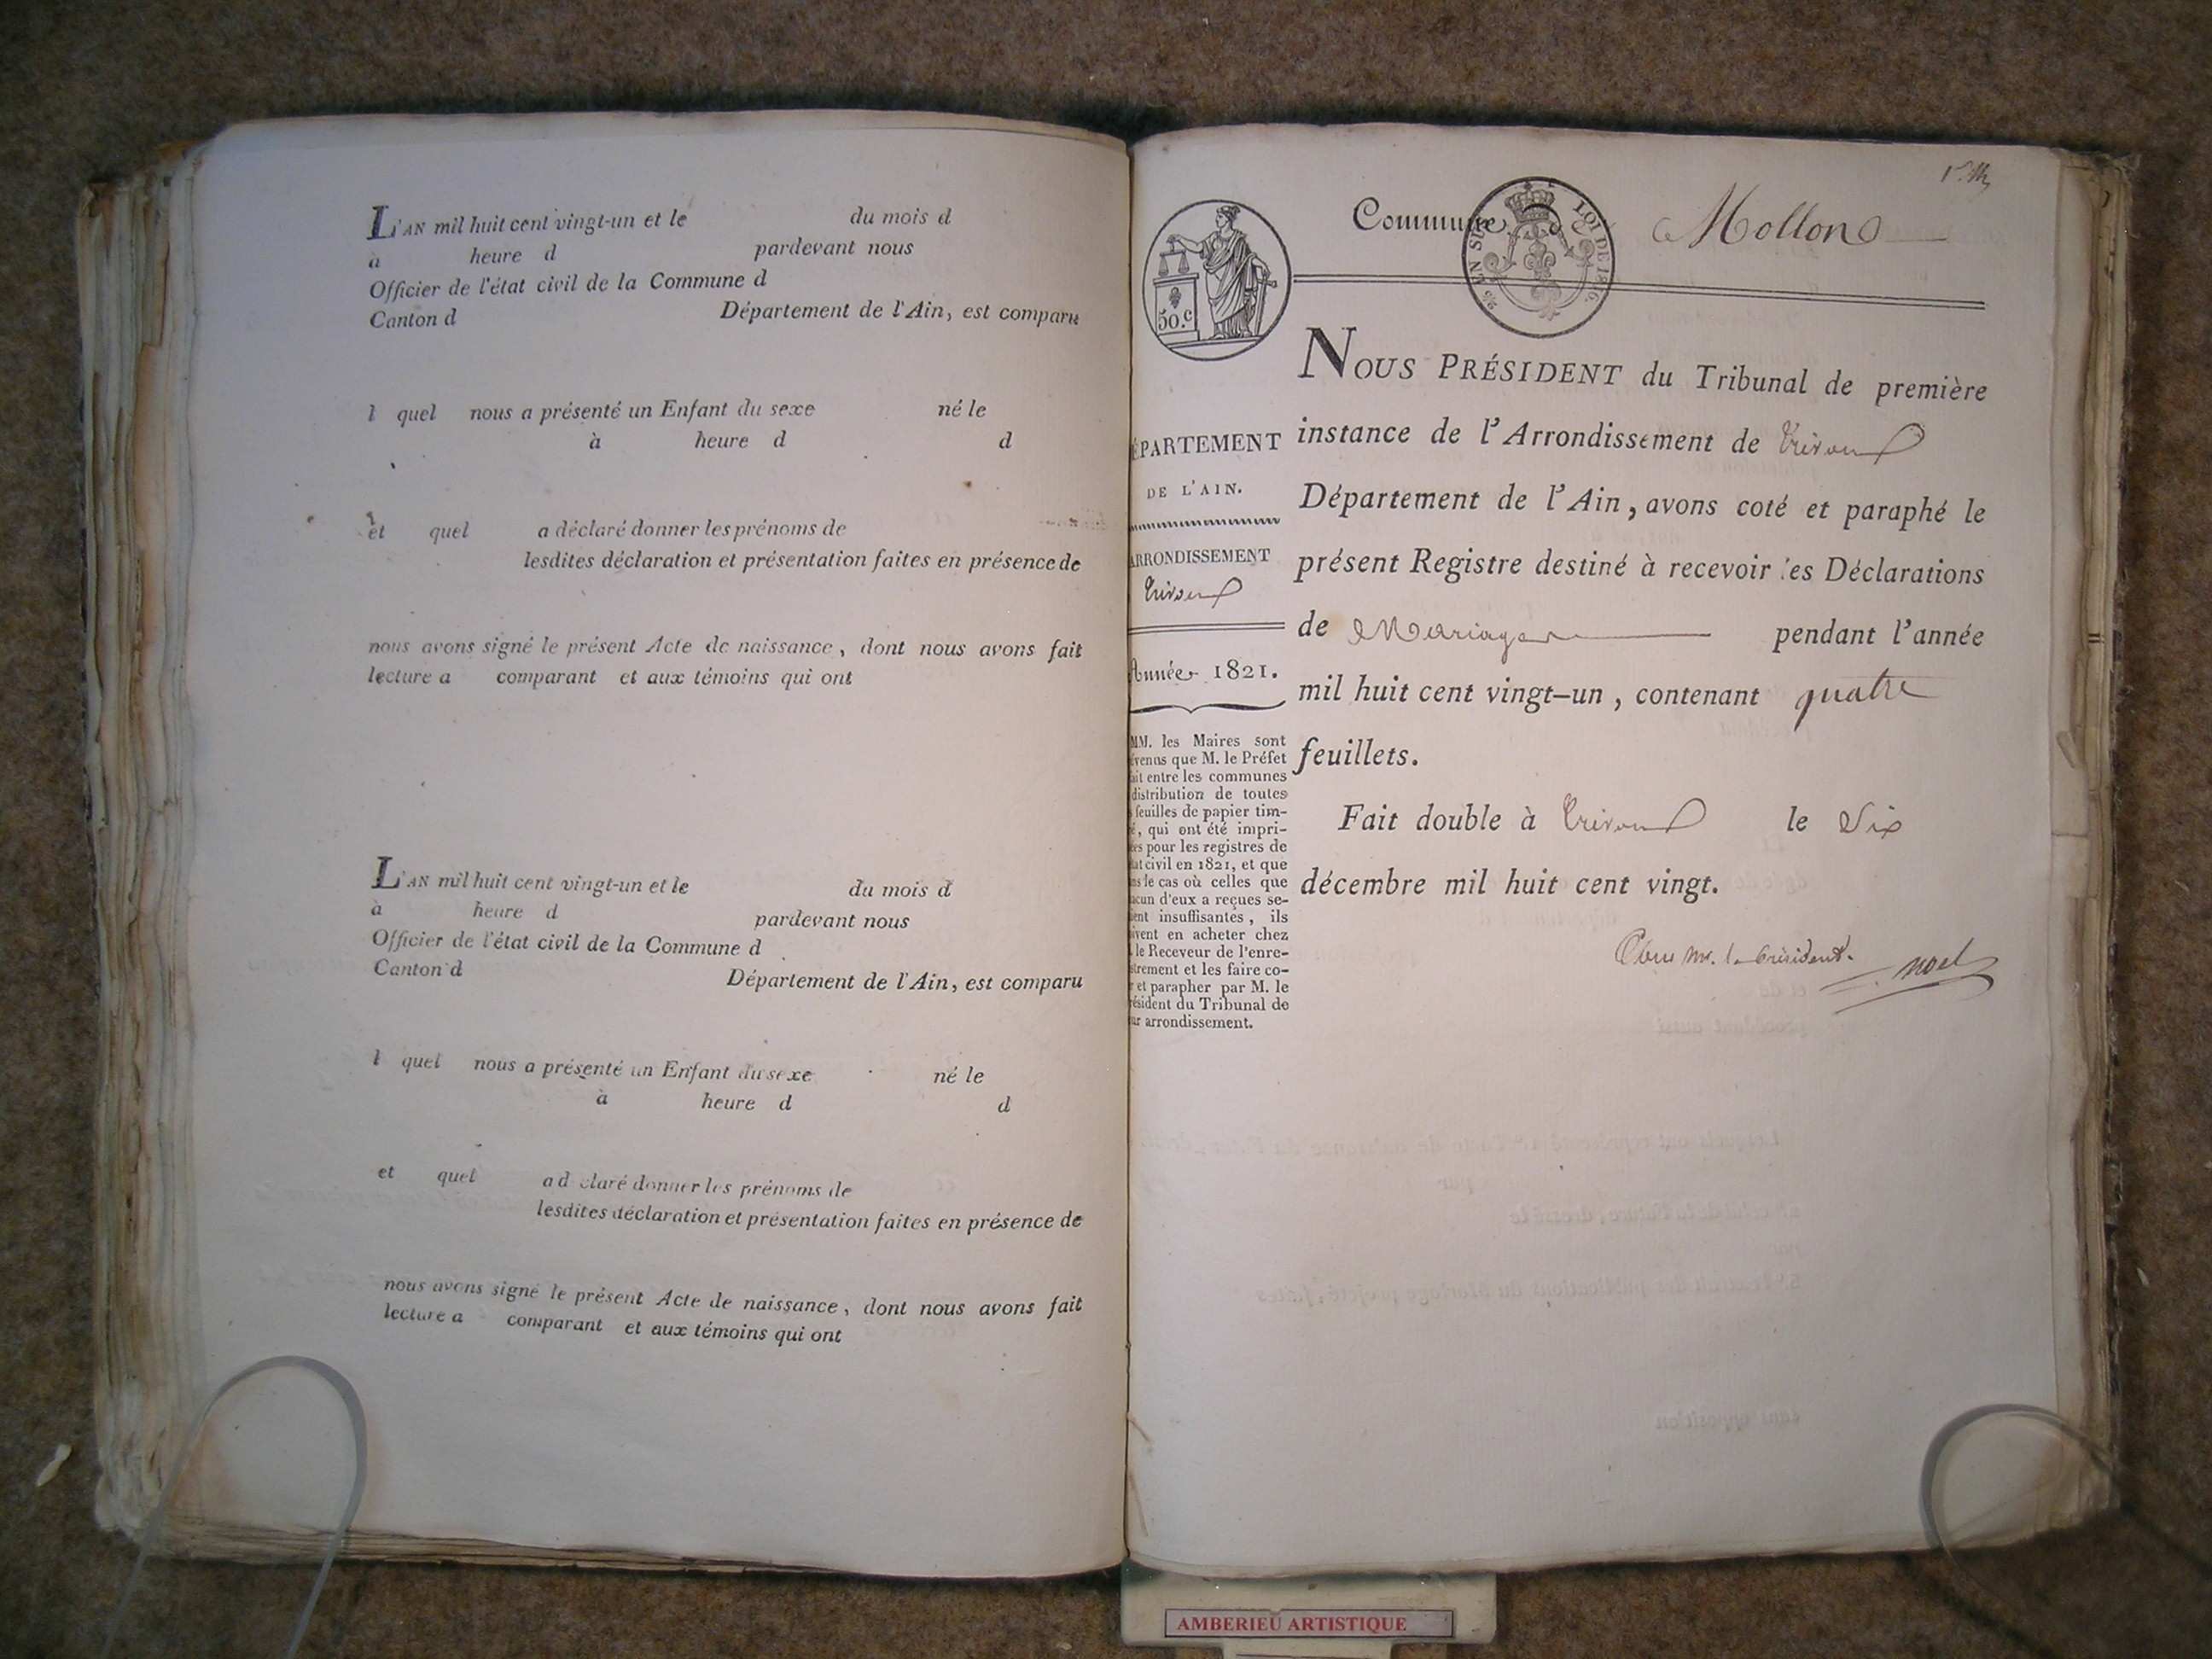 L'AN mil huit cent vingt-un et le du mois d
à heure d pardevant nous
Officier de l'état civil de la Commune d
Canton d Département de l'Ain, est comparu
l quel nous a présenté un Enfant du sexe né le
à heure d d
et quel a déclaré donner les prénoms de
lesdites déclaration et présentation faites en présence de
nous avons signé le présent Acte de naissance, dont nous avons fait
lecture a comparant et aux témoins qui ont
L'AN mil huit cent vingt-un et le du mois d
à heure d pardevant nous
Officier de l'état civil de la Commune d
Canton d Département de l'Ain, est comparu
l quel nous a présenté un Enfant du sexe né le
à heure d d
et quel a d claré donner les prénoms de
lesdites déclaration et présentation faites en présence de
nous avons signé le présent Acte de naissance, dont nous avons fait
lecture a comparant et aux témoins qui ont
Commune de Mollon
50.c
LOI DE 1816.
ÉPARTEMENT
DE L'AIN.
ARRONDISSEMENT
Trévoux
Année 1821.
MM. les Maires sont
évenus que M. le Préfet
ait entre les communes
distribution de toutes
s feuilles de papier tim-
é, qui ont été impri-
ées pour les registres de
tat civil en 1821, et que
ns le cas où celles que
acun d'eux a reçues se-
ient insuffisantes, ils
ivent en acheter chez
. le Receveur de l'enre-
strement et les faire co-
r et parapher par M. le
résident du Tribunal de
ur arrondissement.
NOUS PRÉSIDENT du Tribunal de première
instance de l'Arrondissement de Trévoux
Département de l'Ain, avons coté et paraphé le
présent Registre destiné à recevoir les Déclarations
de Mariages pendant l'année
mil huit cent vingt-un, contenant quatre
feuillets.
Fait double à Trévoux le Six
décembre mil huit cent vingt.
Pour Mr. le Président.
Noel
AMBERIEU ARTISTIQUE